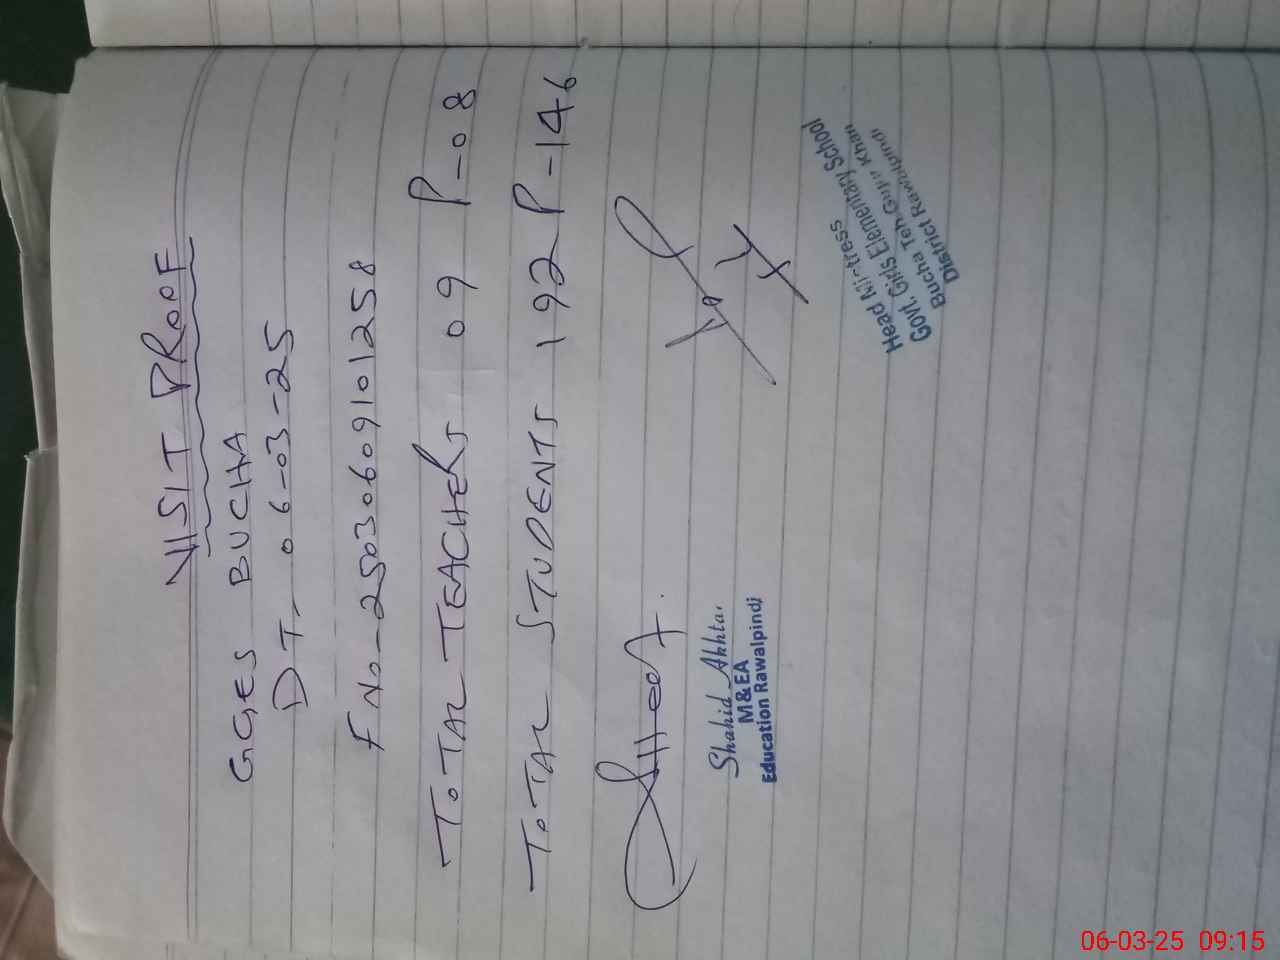 VISIT PROOF
GGES BUCHA
DT, 06-03-25
F No-25030609101258
TOTAL TEACHERS 09 P-08
TOTAL STUDENTS 192 P-146
Shahid Akhtar
M & EA
Education Rawalpindi
Head Mistress
Govt. Girls Elementary School
Bucha Teh. Gujar Khan
District Rawalpindi
06-03-25 09:15